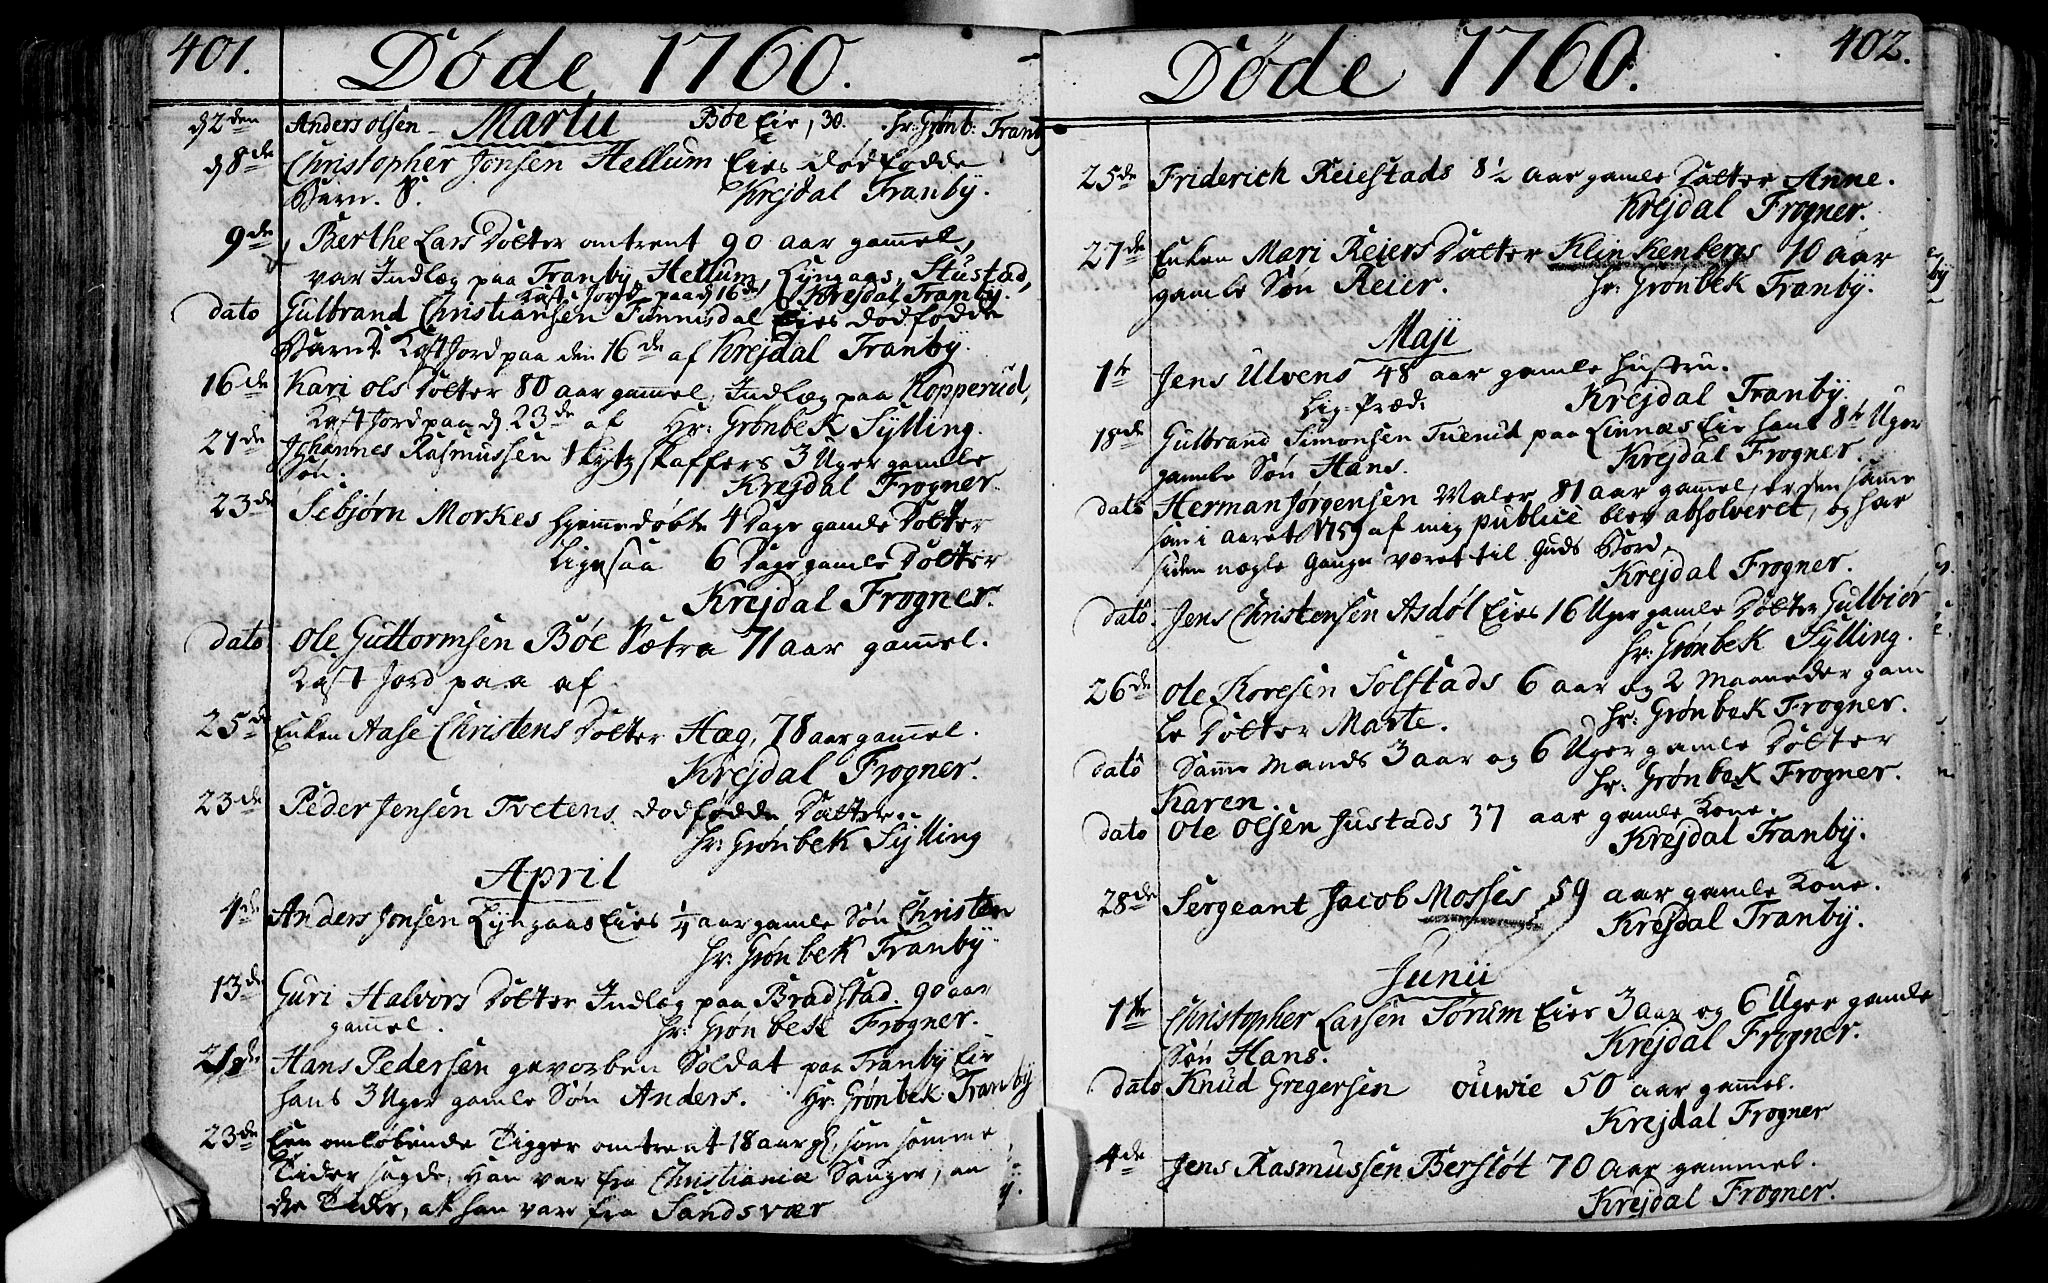 401.
Døde 1760.
d 2den Anders olsen - Martii Bøe Eie, 30. Hr: Grønb: Tranb
d 8de Christopher Jonsen Hellum Eies dødfødde
Barn. S. Krejdal Tranby.
9de Berthe Lars Dotter omtrent 90 aar gamel,
var Indlæg paa Tranby, Hellum, Lyngaas, Stustad,
Kast Jord paa d 16de, Krejdal Tranby.
dato Gulbrand Christiansen Eies dødfødde
Barn Kast Jord paa den 16de af Krejdal Tranby.
16de Kari ols Dotter 80 aar gamel, Indlæg paa Kopperud,
Kast Jord paa d 23de af Hr: Grønbek Sylling.
21de Johannes Rasmussen Skytzskaffers 3 Uger gamle
Søn. Krejdal Frogner.
23de Sebjørn Morkes hjemmedøbte 4 Dage gamle Dotter
Ligesaa 6 Dage gamle Dotter
Krejdal Frogner.
dato Ole Guttormsen Bøe Sætra 71 aar gamel.
Kast Jord paa af
25de Enken Aase Christens Dotter Hæg, 78 aar gamel.
Krejdal Frogner.
23de Peder Jensen Tvetens dødfødde Datter.
Hr: Grønbek Sylling
April
4de Anders Jonsen Lyngaas Eies 1/4 aar gamle Søn Christen
Hr: Grønbek Tranby.
13de Guri Halvors Dotter Indlæg paa Bradstad. 90 aar
gamel. Hr: Grønbek Frogner.
21de Hans Pedersen gevorben Soldat paa Tranby Eie
hans 3 Uger gamle Søn Anders. Hr: Grønbek Tranby
23de Een omløbende Tigger omtrent 18 aar gl, som somme
Tider sagde, han var fra Christiania Sanger, an
dre Tider, at han var fra Sandsvær
402.
Døde 1760.
25de Friderich Reiestads 8 1/2 aar gamle Datter Anne.
Krejdal Frogner.
27de Enken Mari Reiers Datter Klinkenbergs 10 aar
gamle Søn Reier. Hr: Grønbek Tranby.
Maji
1te Jens Ulvens 48 aar gamle Hustru.
Lig-Præd: Krejdal Tranby.
18de Gulbrand Simonsen Tuerud paa Linnæs Eie hans 8te Uger
gamle Søn Hans. Krejdal Frogner.
dato Herman Jørgensen Maler 81 aar gamel, er den samme
som i aaret 1759 af mig publice blev absolveret, og har
siden nogle Gange været til Guds Bord,
Krejdal Frogner.
dato. Jens Christensen Asdøl Eies 16 Uger gamle Dotter Gulbiør
Hr: Grønbek Sylling.
26de Ole Koresen Solstads 6 aar og 2 Maaneder gam
le Dotter Marte. Hr: Grønbek Frogner.
dato Samme Mands 3 aar og 6 Uger gamle Dotter
Karen. Hr: Grønbek Frogner.
dato Ole Olsen Justads 37 aar gamle Kone.
Krejdal Tranby.
28de Sergeant Jacob Mosses 59 aar gamle Kone.
Krejdal Tranby.
Junii
1te Christopher Larsen Sørum Eies 3 aar og 6 Uger gamle
Søn Hans. Krejdal Frogner.
dato Knud Gregersen ouwie 50 aar gammel.
Krejdal Frogner
4de Jens Rasmussen Bersløt 70 aar gammel.
Krejdal Frogner.